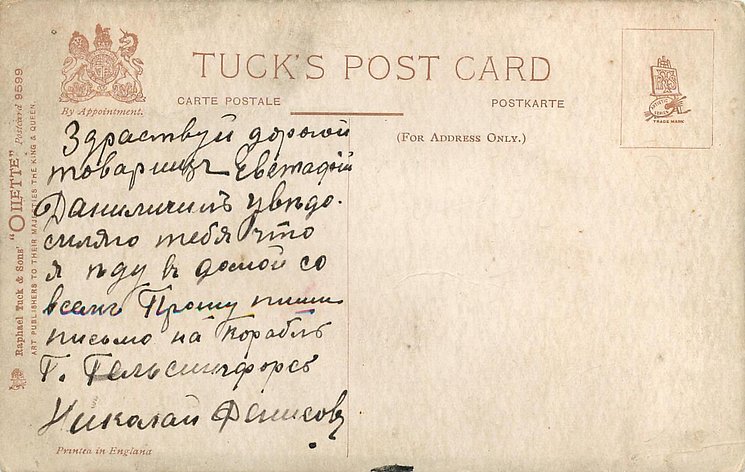 TUCK'S POST CARD
CARTE POSTALE
POSTKARTE
By Appointment.
(FOR ADDRESS ONLY.)
TRADE MARK
Raphael Tuck & Sons' "OILETTE" Postcard 9599
ART PUBLISHERS TO THEIR MAJESTIES THE KING & QUEEN.
Здраствуй дорогой
товарищъ
Даниличилъ увѣдо-
мляю тебя что
я ѣду в домой со
всемъ Прошу пиши
письмо на корабль
Г. Гельсингфорсъ
Николай Денисовъ
Printed in England